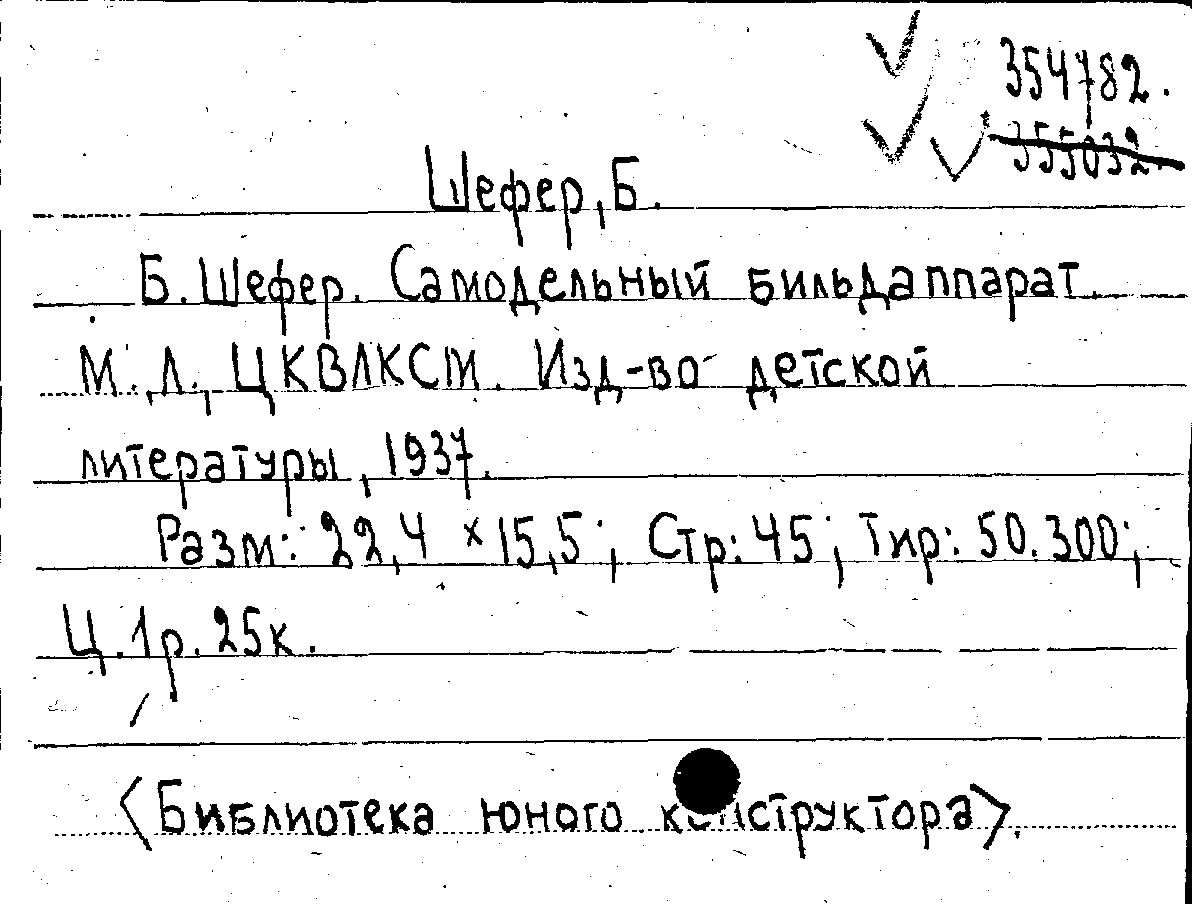 354782.
355032.
Шефер, Б.
Б. Шефер. Самодельный бильдаппарат.
М., Л., ЦКВЛКСМ. Изд-во детской
литературы, 1937.
Разм: 22,4 × 15,5; Стр: 45; Тир: 50.300;
Ц. 1р. 25к.
<Библиотека юного конструктора>.